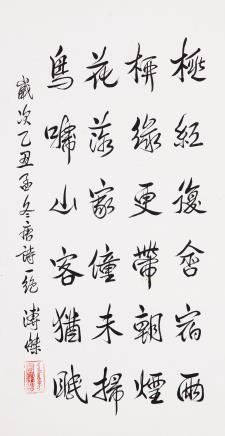 桃紅復含宿雨
柳綠更帶朝煙
花落家僮未掃
鳥啼山客猶眠
歲次乙丑孟冬唐詩一絕 溥傑